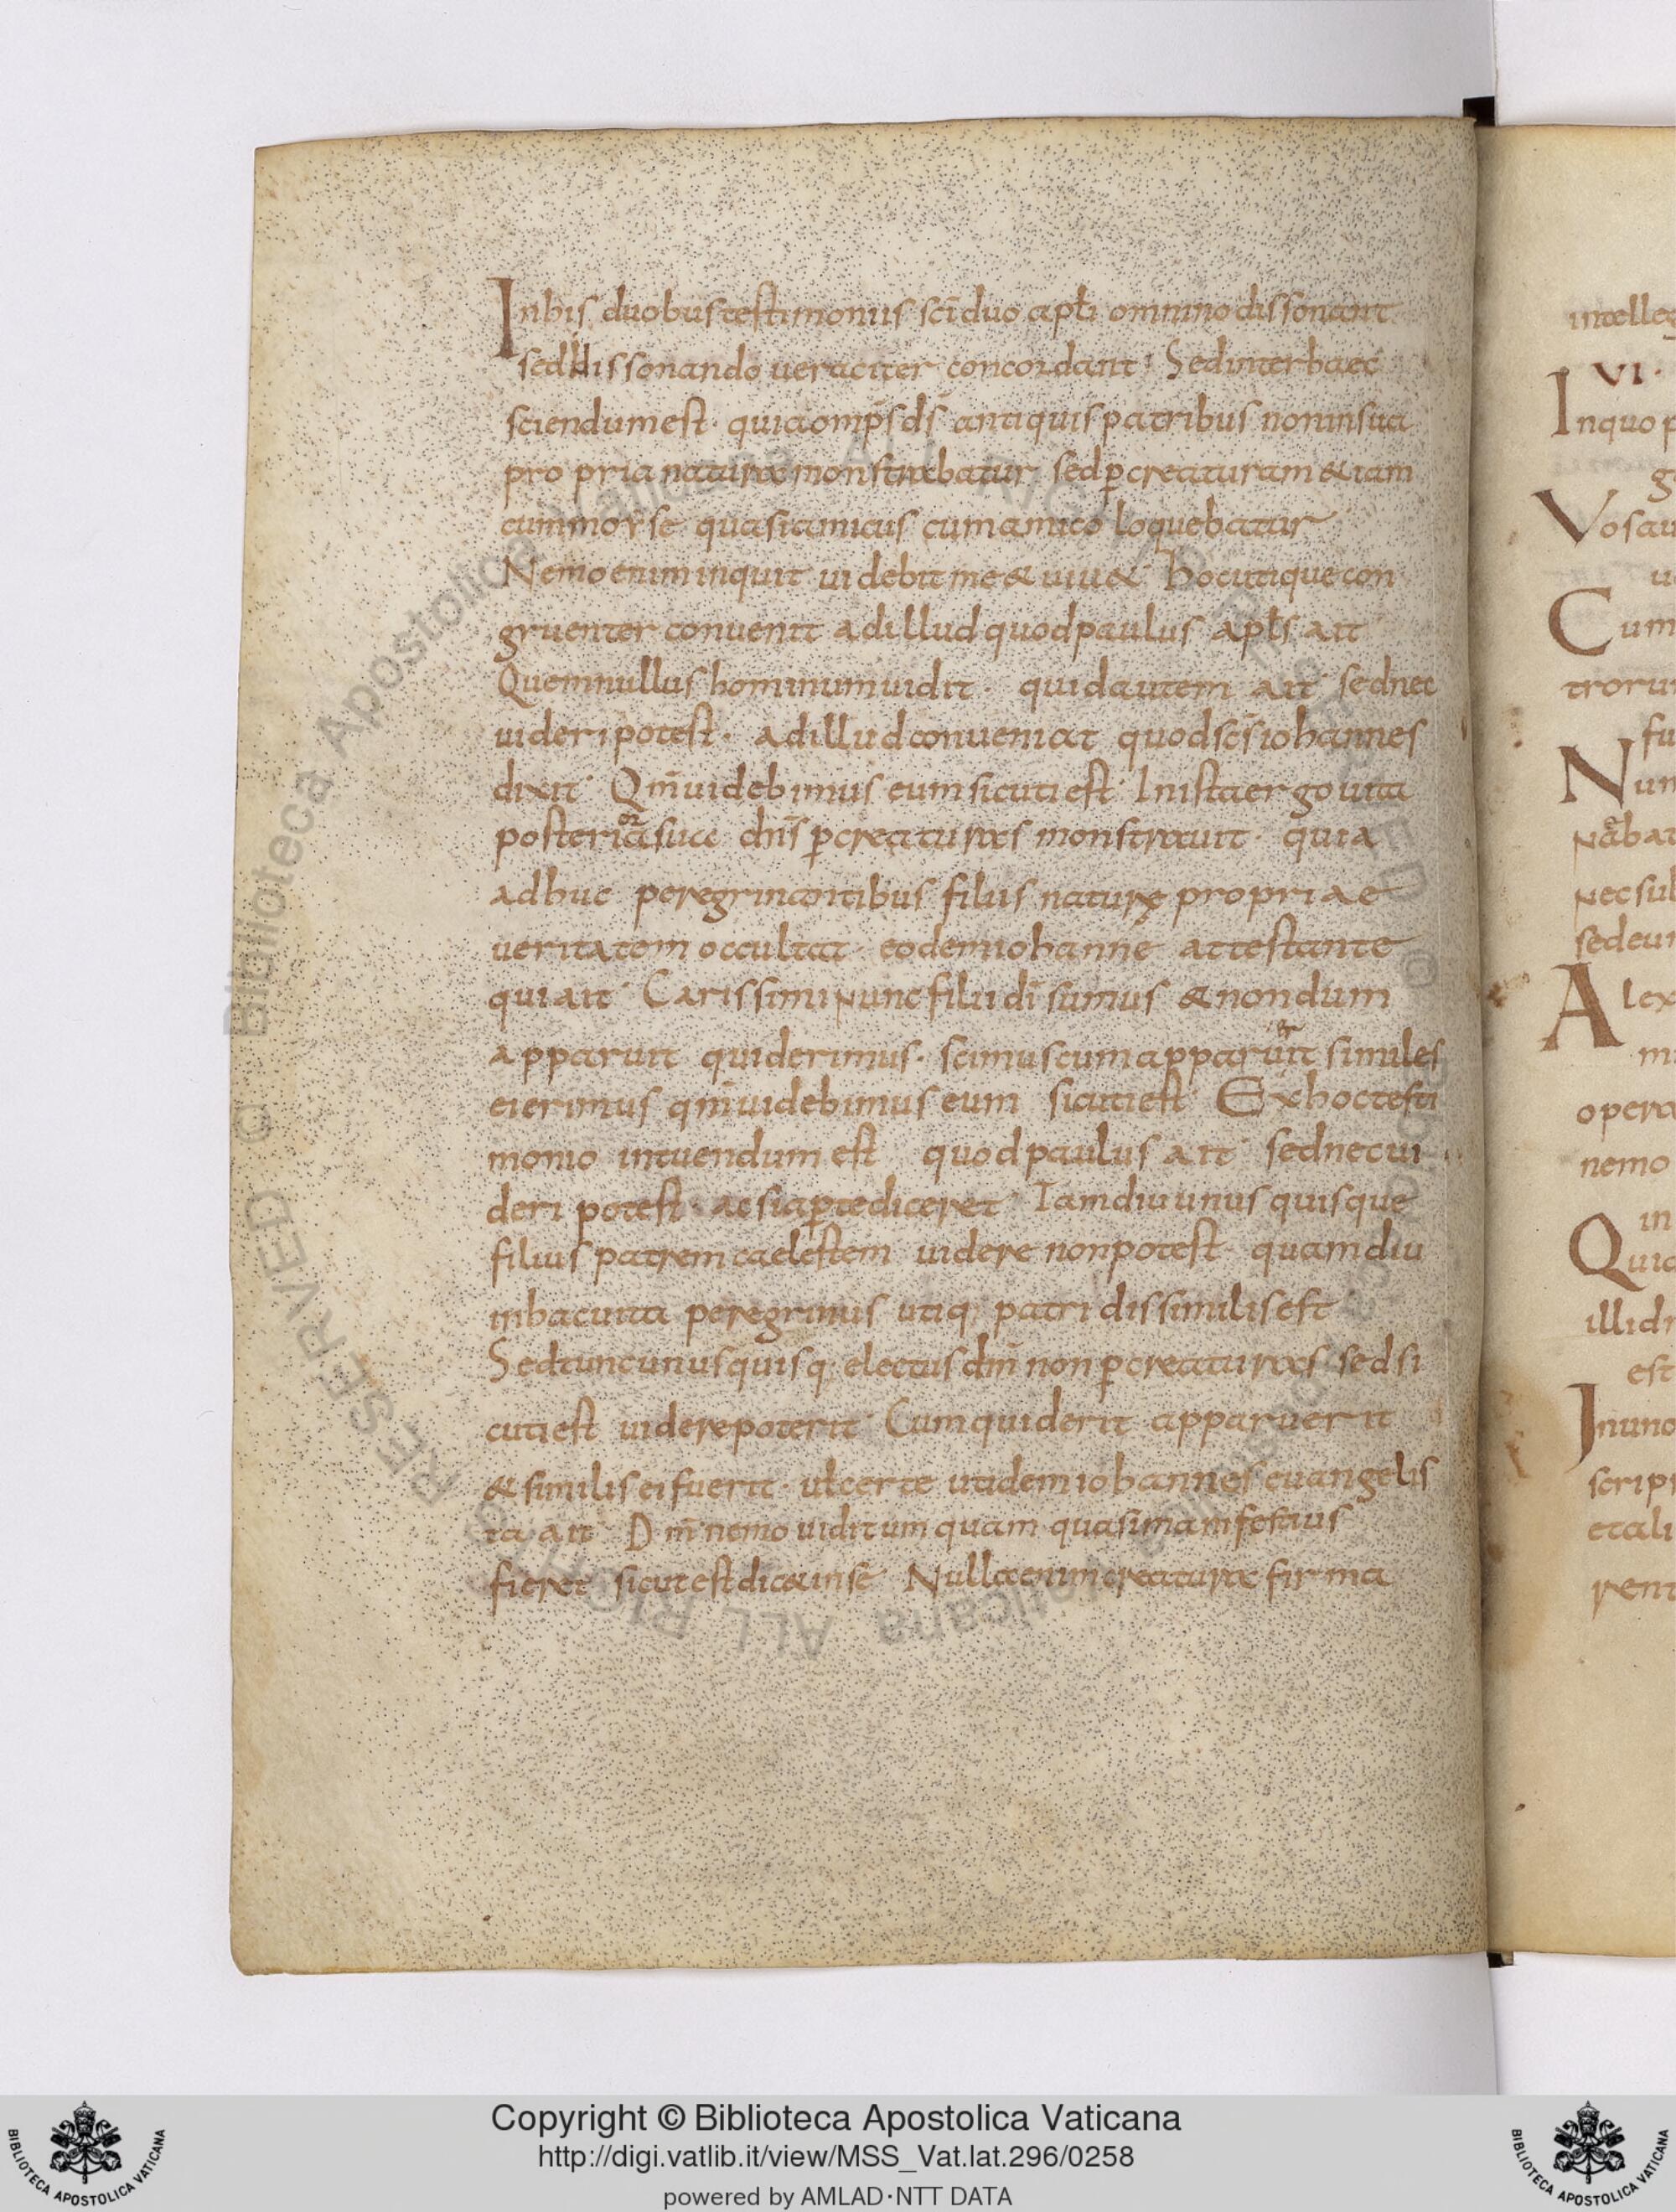 In his duobus testimoniis sc̄i duo apłi omnino dissonant
sed dissonando ueraciter concordant. Sed inter haec
sciendum est. quia omp̄s d̄s antiquis patribus non in sua
propria natura monstrabatur sed p̱ creaturam &iam
cum moyse quasi amicus cum amico loquebatur
Nemo enim inquit uidebit me & uiu& hoc utique con
gruenter conuenit ad illud quod paulus apłs ait
Quem nullus hominum uidit. quid autem ait sed nec
uideri potest. ad illud conueniat quod sc̄s iohannes
dixit Qm̄ uidebimus eum sicuti est In ista ergo uita
posteriora sua dn̄s p̱ creaturas monstrauit. quia
adhuc peregrinantibus filiis naturę propriae
ueritatem occultat eodem iohanne attestante
qui ait Carissimi nunc filii dī sumus & nondum
apparuit quid erimus. scimus cum apparuerit similes
ei erimus qm̄ uidebimus eum sicuti est Ex hoc testi
monio intuendum est quod paulus ait sed nec ui
deri potest. ac si ap̱te diceret Iamdiu unus quisque
filius patrem caelestem uidere non potest quamdiu
in hac uita peregrinus utiq; patri dissimilis est
Sed tunc unusquisq; electus dm̄ non p̱ creaturas sed si
cuti est uidere poterit Cum quid erit apparuerit
& similis ei fuerit. uł certe ut idem iohannes euangelis
ta ait Dm̄ nemo uidit umquam quasi manifestius
fieret sicut est dic& in se Nulla enim creatura firma
intelleg
VI.
In quo p
g
Vos au
u
Cum
trorum
fu
Nun
nabat
nec sul
sed eum
Alex
m
opera
nemo
in
Quid
illi dr
est
In uno
scrip
et ali
rent
© Biblioteca Apostolica Vaticana ALL RIGHTS RESERVED
Copyright © Biblioteca Apostolica Vaticana
http://digi.vatlib.it/view/MSS_Vat.lat.296/0258
powered by AMLAD·NTT DATA
BIBLIOTECA APOSTOLICA VATICANA
BIBLIOTECA APOSTOLICA VATICANA